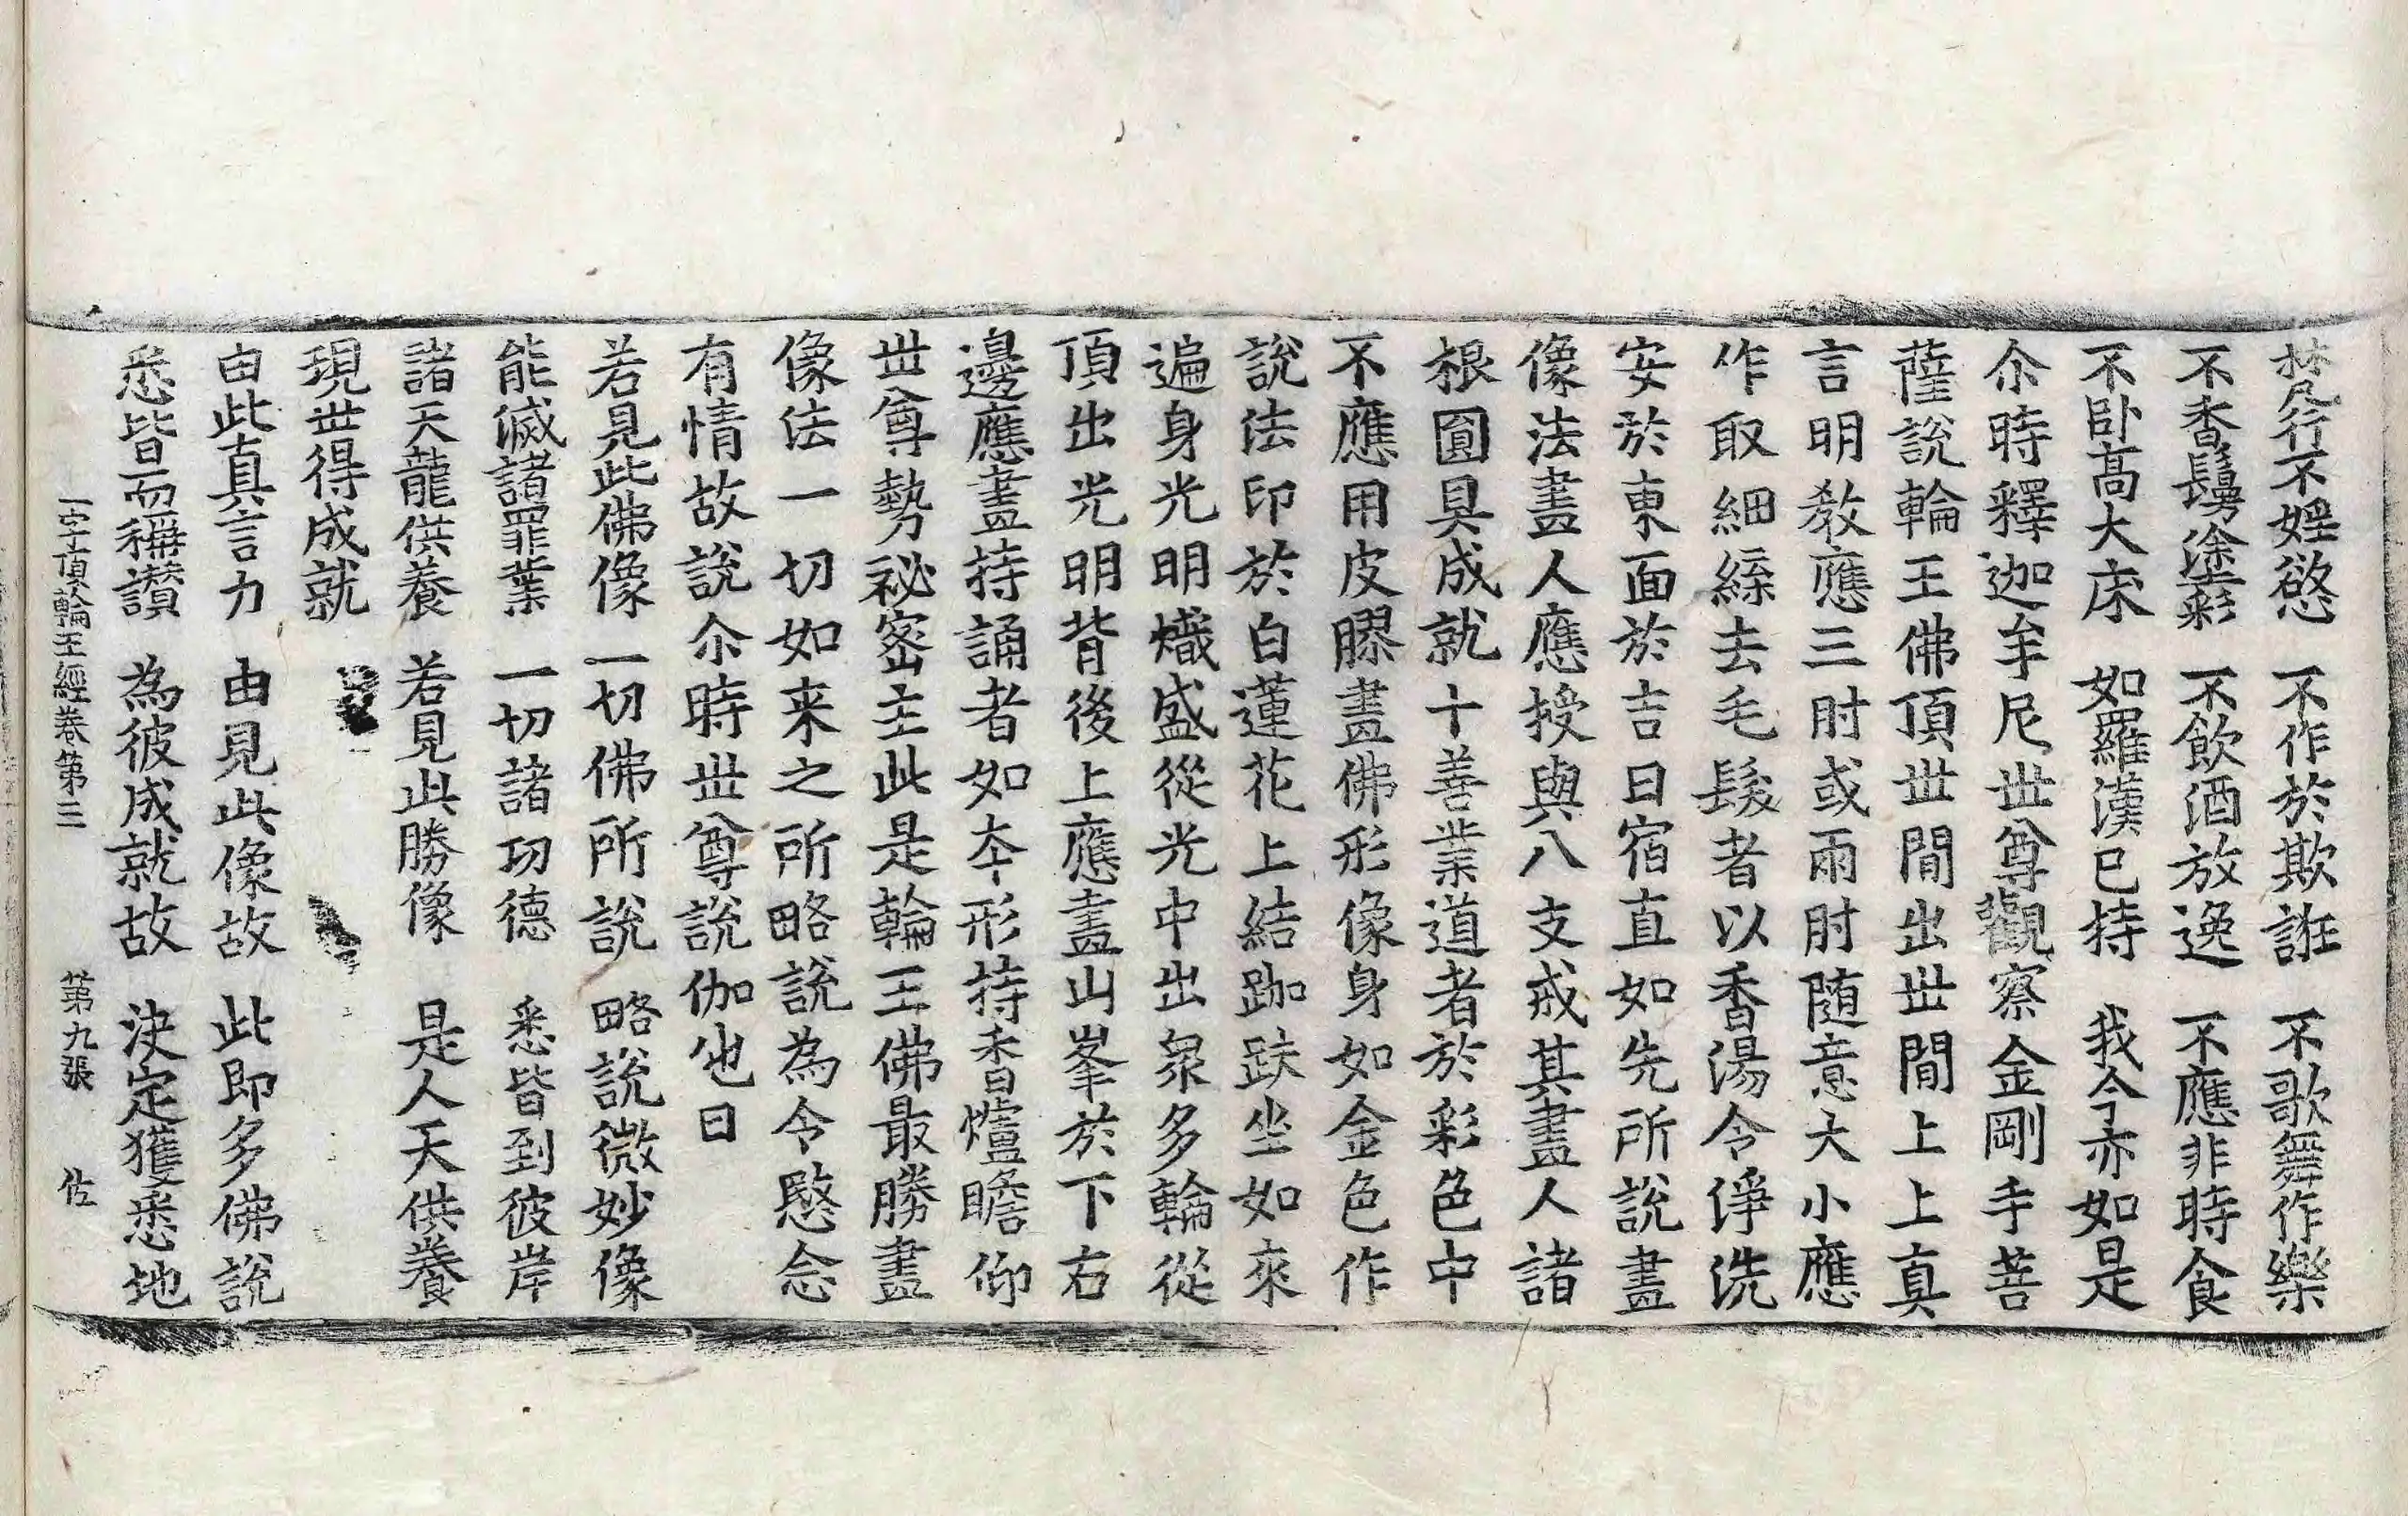 梵行不婬慾　不作於欺誑　不歌舞作樂
不香鬘塗彩　不飲酒放逸　不應非時食
不卧高大床　如羅漢已持　我今亦如是
尒時釋迦牟尼世尊觀察金剛手菩
薩說輪王佛頂世間出世間上上真
言明教應三肘或兩肘随意大小應
作取細緜去毛髮者以香湯令淨洗
安於東面於吉日宿直如先所說畫
像法畫人應授與八支戒其畫人諸
根圓具成就十善業道者於彩色中
不應用皮膠畫佛形像身如金色作
說法印於白蓮花上結跏趺坐如來
遍身光明熾盛從光中出衆多輪從
頂出光明背後上應畫山峯於下右
邊應畫持誦者如本形持香爐瞻仰
世尊勢祕密主此是輪王佛最勝畫
像法一切如来之所略說為令愍念
有情故說尒時世尊說伽他曰
若見此佛像　一切佛所說　略說微妙像
能滅諸罪業　一切諸功德　悉皆到彼岸
諸天龍供養　若見此勝像　是人天供養
現世得成就
由此真言力　由見此像故　此即多佛說
悉皆而稱讃　為彼成就故　決定獲悉地
一字頂輪王經卷第二　第九張　佐